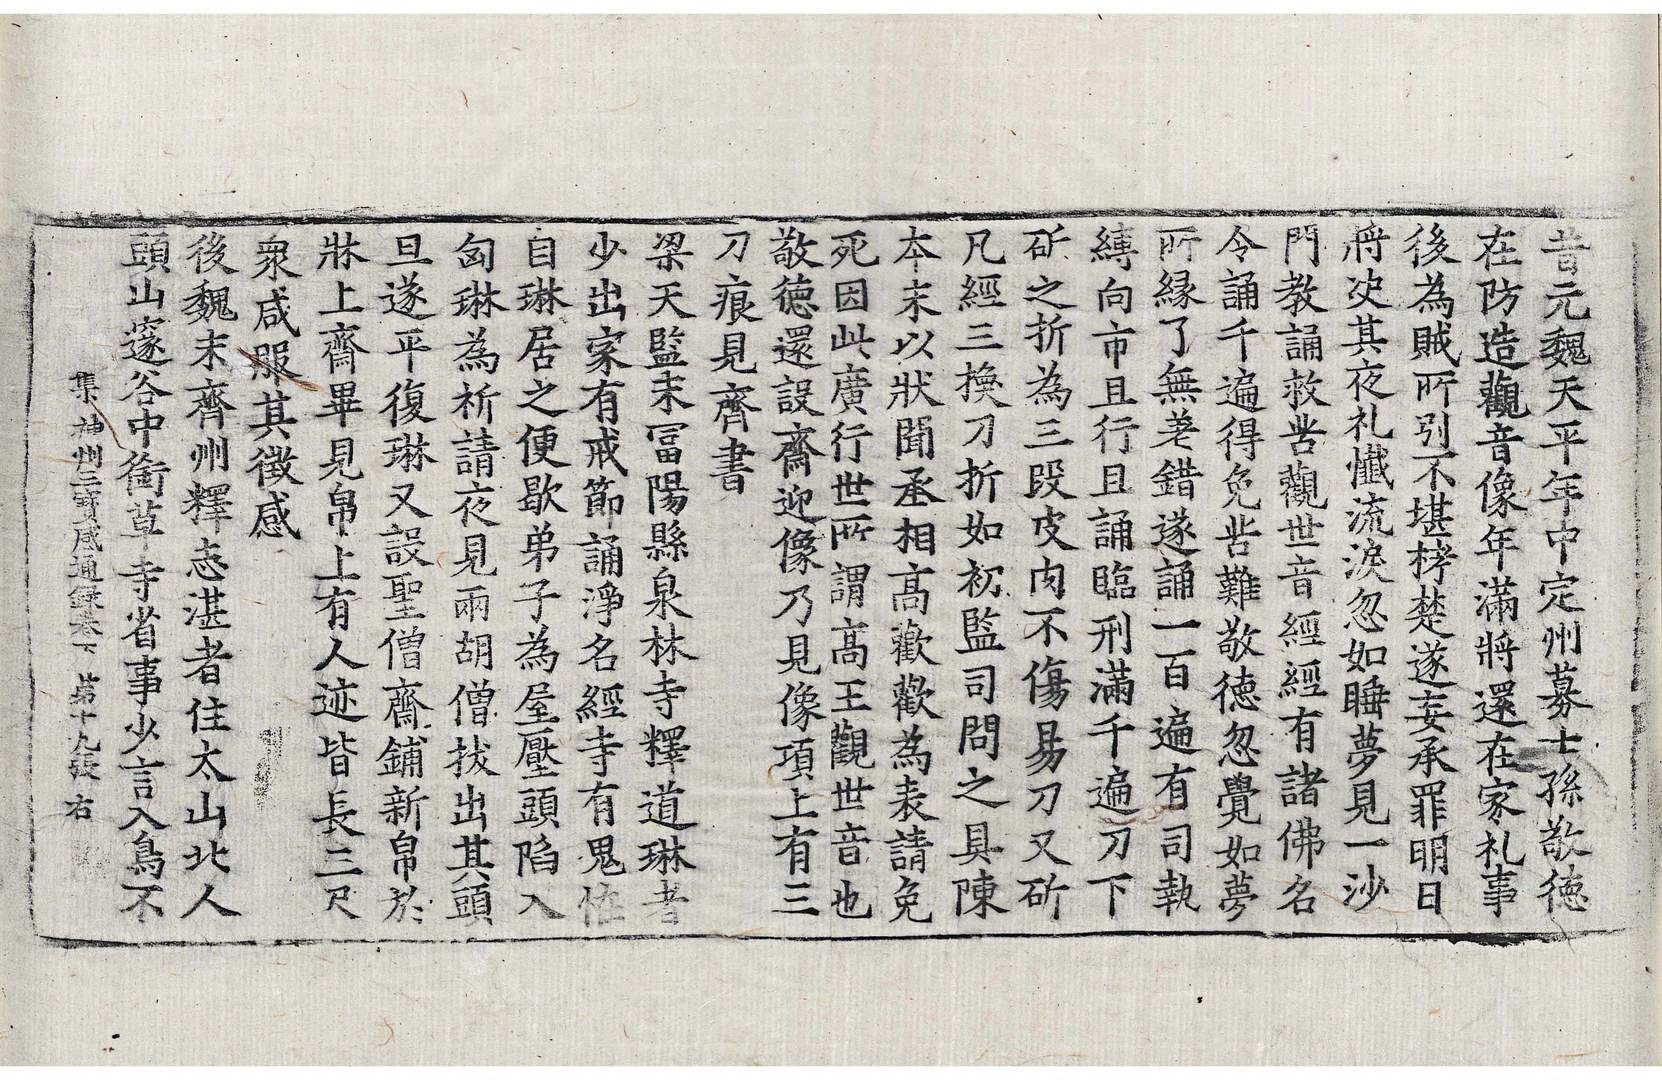 昔元魏天平年中定州募士孫敬德
在防造觀音像年滿將還在家礼事
後為賊所引不堪栲楚遂妄承罪明日
將决其夜礼懺流淚忽如睡夢見一沙
門教誦救苦觀世音經經有諸佛名
令誦千遍得免苦難敬德忽覺如夢
所緣了無差錯遂誦一百遍有司執
縛向市且行且誦臨刑滿千遍刀下
斫之折為三段皮肉不傷易刀又斫
凡經三換刀折如初監司問之具陳
本末以狀聞丞相高歡歡為表請免
死因此廣行世所謂高王觀世音也
敬德還設齋迎像乃見像項上有三
刀痕見齊書
梁天監末冨陽縣泉林寺釋道琳者
少出家有戒節誦淨名經寺有鬼怪
自琳居之便歇弟子為屋壓頭陷入
匈琳為祈請夜見兩胡僧拔出其頭
旦遂平復琳又設聖僧齋鋪新帛於
牀上齋畢見帛上有人迹皆長三尺
衆咸服其徵感
後魏末齊州釋志湛者住太山北人
頭山邃谷中銜草寺省事少言入鳥不
集神州三寶感通録卷下 第十九張 右